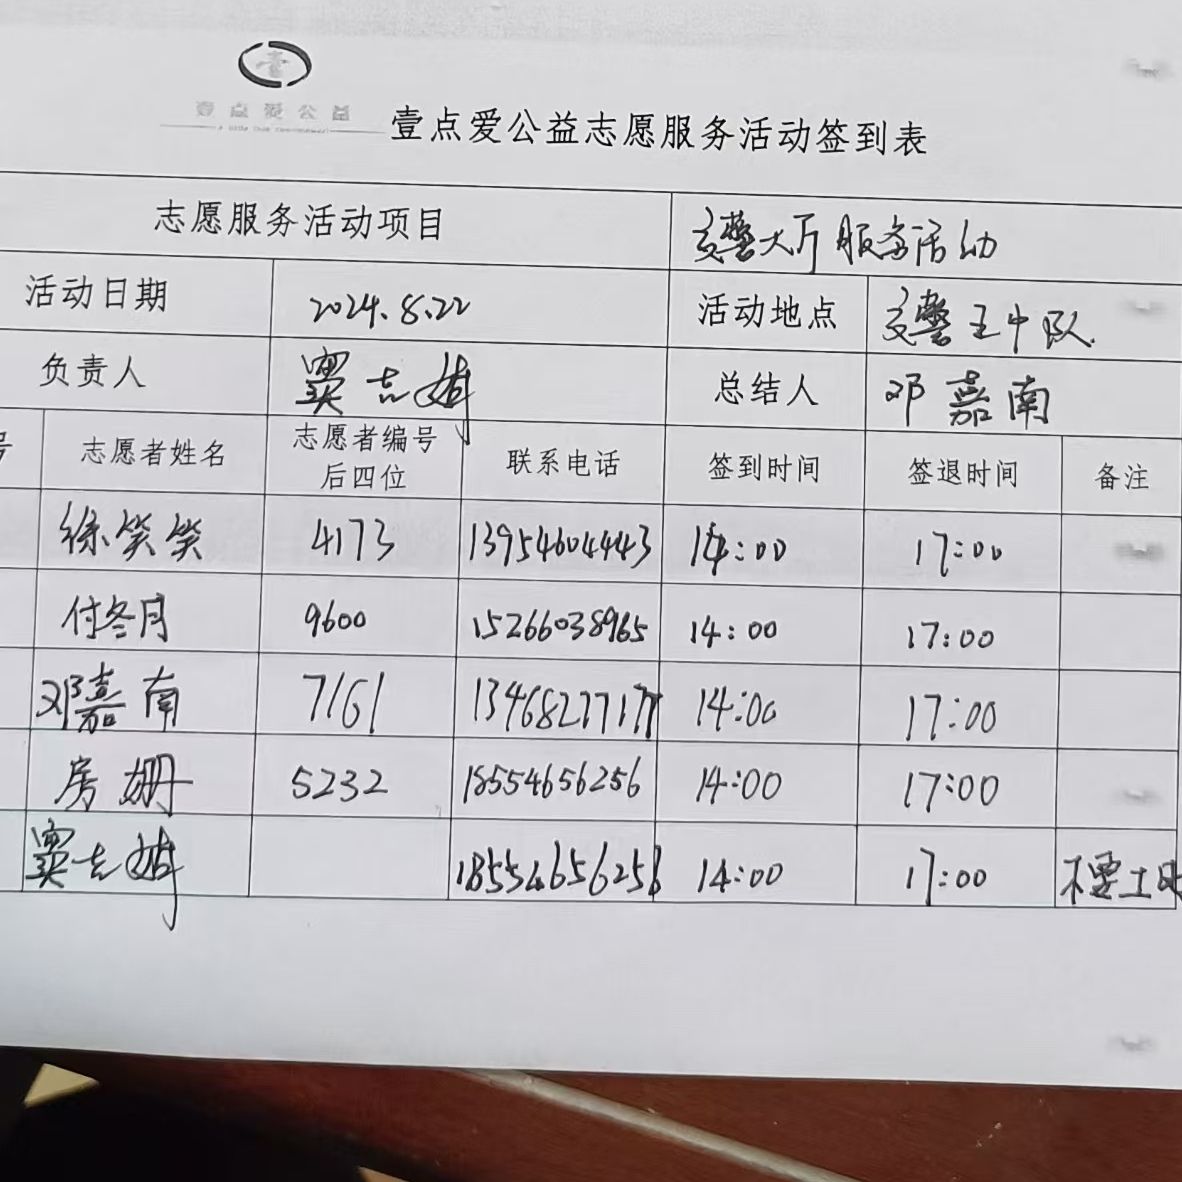 壹点爱公益
壹点爱公益志愿服务活动签到表
志愿服务活动项目 交警大厅服务活动
活动日期 2024.8.22 活动地点 交警五中队
负责人 窦志娟 总结人 邓嘉南
号 志愿者姓名 志愿者编号后四位 联系电话 签到时间 签退时间 备注
徐笑笑 4173 13954604443 14:00 17:00
付冬月 9600 15266038965 14:00 17:00
邓嘉南 7161 13468277177 14:00 17:00
房姗 5232 18554656256 14:00 17:00
窦志娟 18554656256 14:00 17:00 不要工时